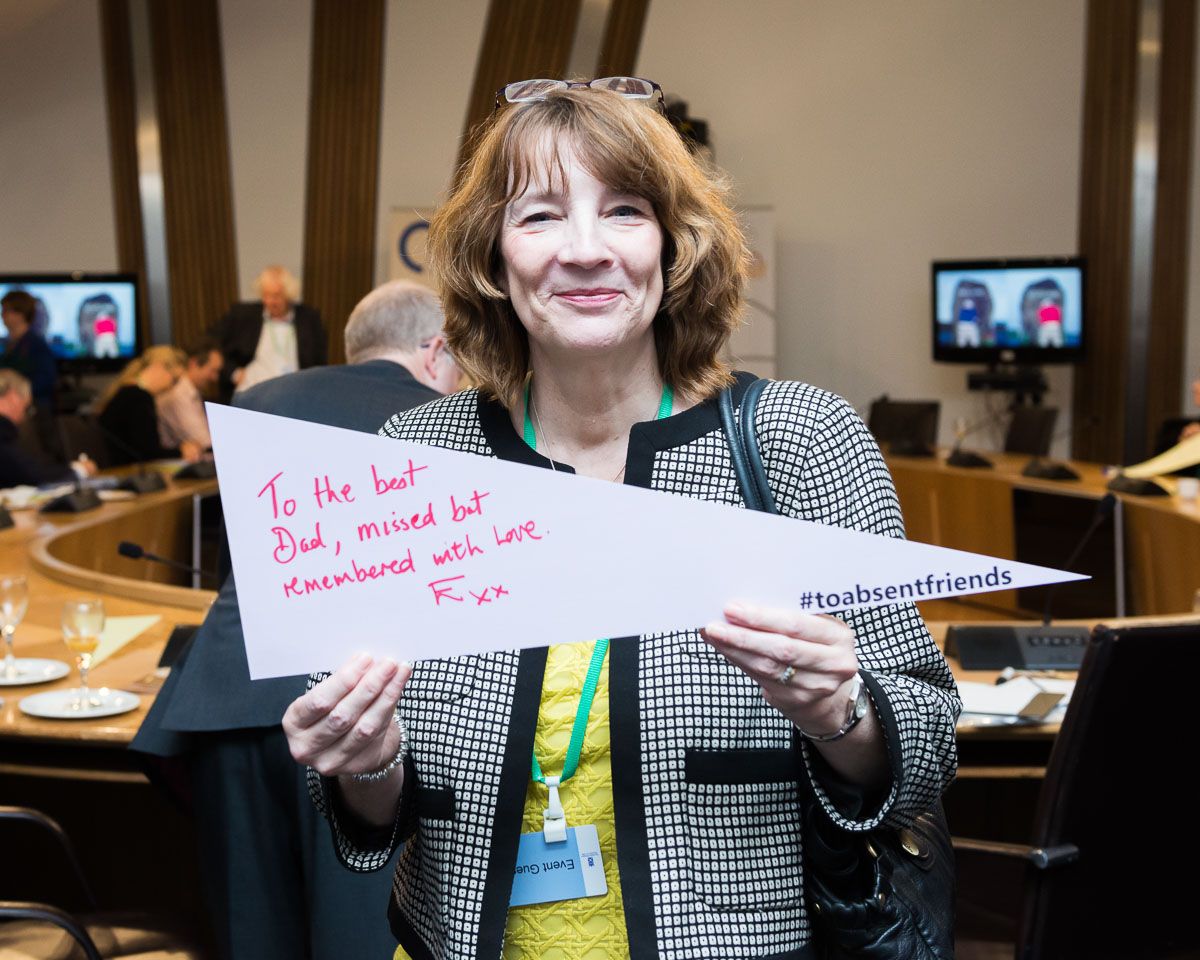 To the best
Dad, missed but
remembered with love.
F xx
#toabsentfriends
Event